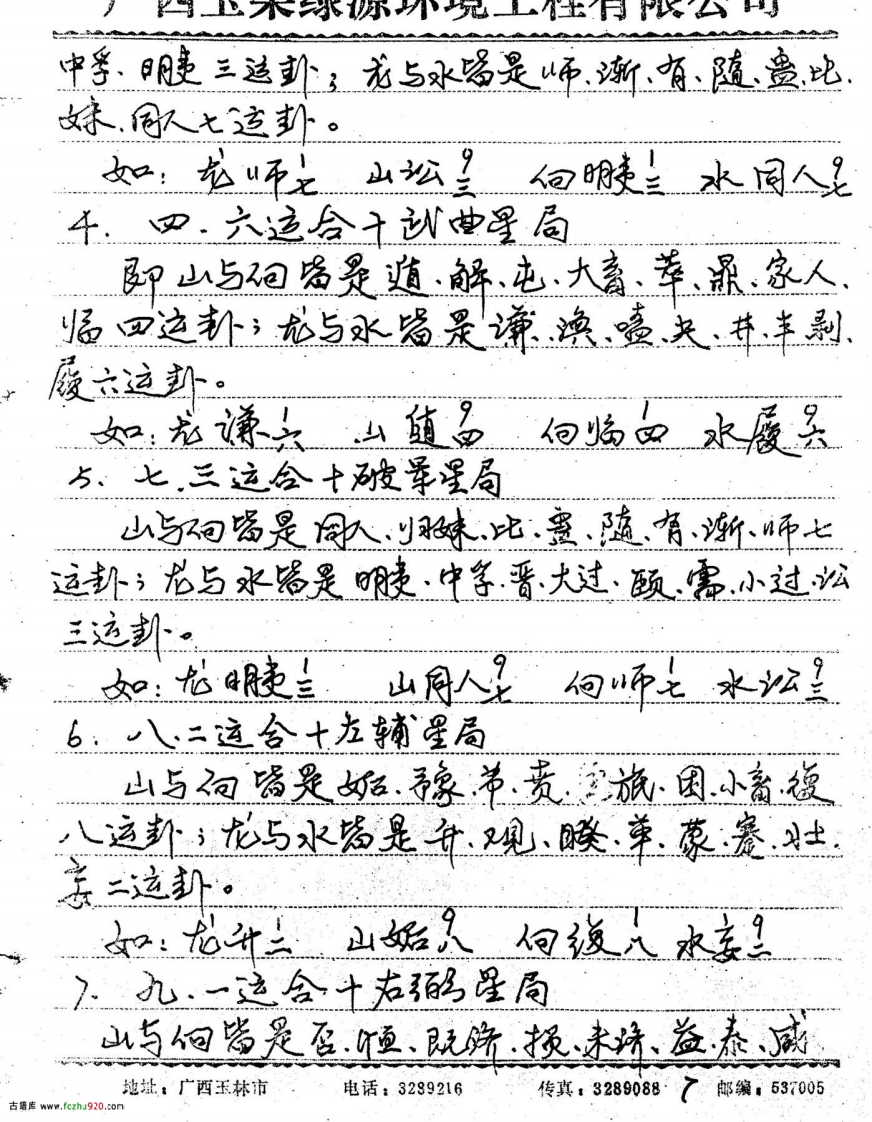 广西玉柴绿源环境工程有限公司
中孚、明夷三运卦；龙与水皆是师、渐、有、随、蛊、比、
妹、同人七运卦。
如：龙师一七 山讼九三 向明夷一三 水同人九七
4、四、六运合十武曲星局
即山与向皆是遁、解、屯、大畜、萃、鼎、家人、
临四运卦；龙与水皆是谦、涣、嗑、夬、井、丰、剥、
履六运卦。
如：龙谦1六 山遁9四 向临1四 水履9六
5、七、三运合十破军星局
山与向皆是同人、归妹、比、蛊、随、有、渐、师七
运卦；龙与水皆是明夷、中孚、晋、大过、颐、需、小过、讼
三运卦。
如：龙明夷1三 山同人9七 向师1七 水讼9三
6、八、二运合十左辅星局
山与向皆是姤、豫、节、贲、旅、困、小畜、復
八运卦；龙与水皆是升、观、睽、革、蒙、蹇、壮、
妄二运卦。
如：龙升1二 山姤9八 向復1八 水妄9二
7、九、一运合十右弼星局
山与向皆是否、恒、既济、损、未济、益、泰、咸
地址：广西玉林市 电话：3289216 传真：3289088 7 邮编：537005
古籍库 www.fozhu920.com